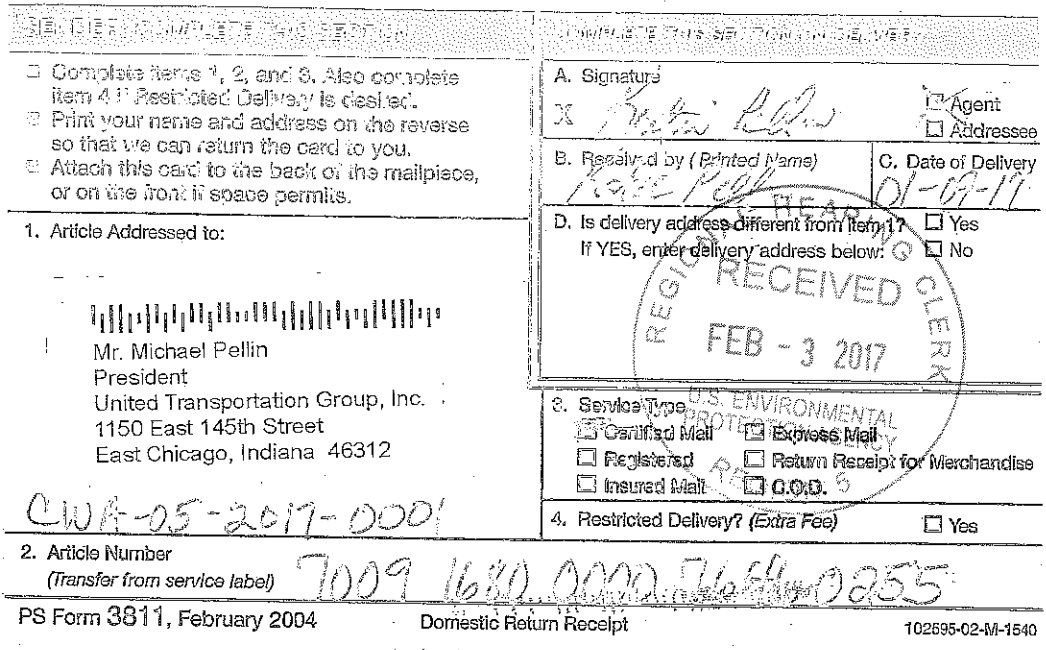 SENDER: COMPLETE THIS SECTION
Complete items 1, 2, and 3. Also complete
item 4 if Restricted Delivery is desired.
Print your name and address on the reverse
so that we can return the card to you.
Attach this card to the back of the mailpiece,
or on the front if space permits.
1. Article Addressed to:
Mr. Michael Pellin
President
United Transportation Group, Inc.
1150 East 145th Street
East Chicago, Indiana 46312
CWA-05-2017-0001
2. Article Number
(Transfer from service label)
7009 1680 0000 0255
PS Form 3811, February 2004
Domestic Return Receipt
102595-02-M-1540
COMPLETE THIS SECTION ON DELIVERY
A. Signature
X
Agent
Addressee
B. Received by (Printed Name)
C. Date of Delivery
01-09-17
D. Is delivery address different from item 1? Yes
If YES, enter delivery address below: No
REGIONAL HEARING CLERK
RECEIVED
FEB - 3 2017
U.S. ENVIRONMENTAL
PROTECTION AGENCY
REGION 5
3. Service Type
Certified Mail Express Mail
Registered Return Receipt for Merchandise
Insured Mail C.O.D.
4. Restricted Delivery? (Extra Fee) Yes